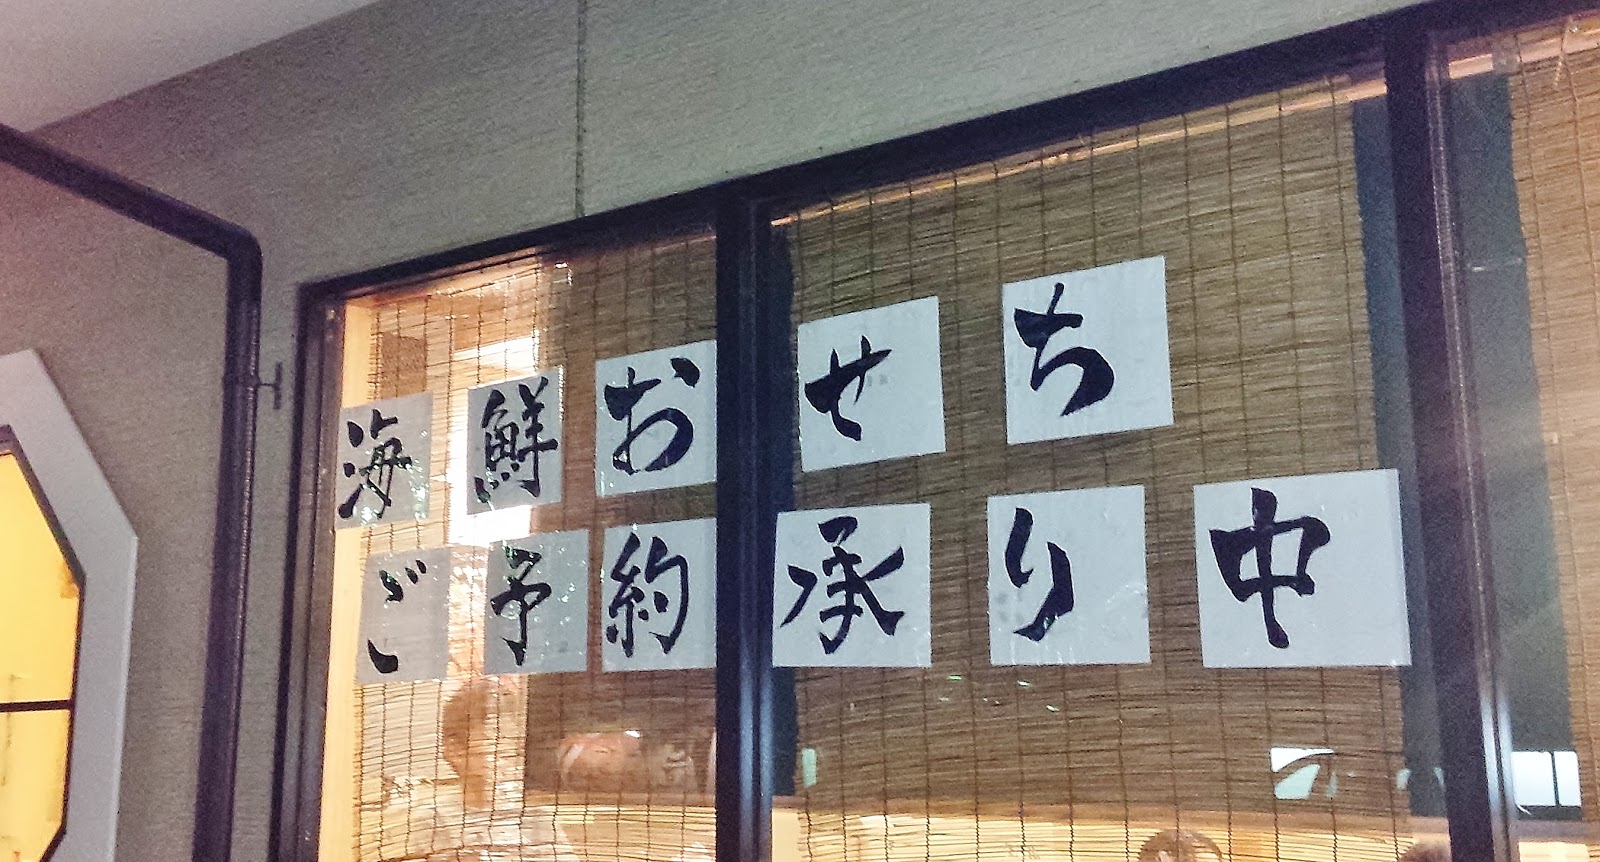 海鮮おせち
ご予約承り中